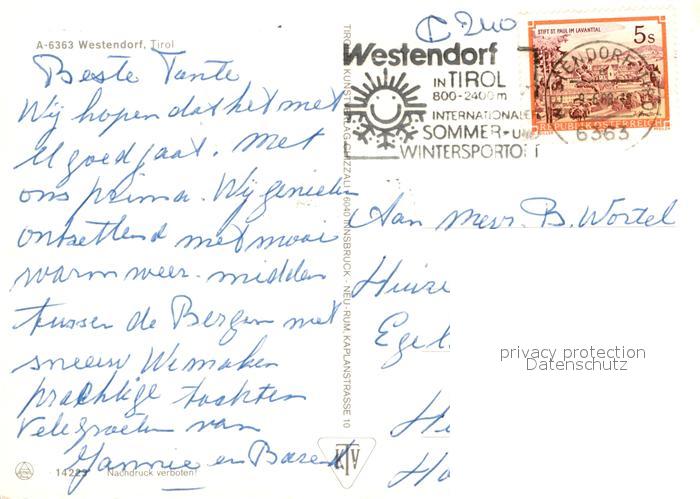 A-6363 Westendorf, Tirol
Beste Tante
Wij hopen dat het met
U goed gaat. Met
ons prima. Wij genieten
ontzettend met mooi
warm weer. midden
tussen de Bergen met
sneeuw We maken
prachtige tochten
Vele groeten van
Jannie en Barend
14225 Nachdruck verboten!
TIROLER KUNSTVERLAG CHIZZALI, 6040 INNSBRUCK - NEU-RUM, KAPLANSTRASSE 10
KTV
Westendorf
IN TIROL
800-2400m
INTERNATIONALE
SOMMER- U
WINTERSPORTORT
STIFT ST. PAUL IM LAVANTTAL
5s
REPUBLIK ÖSTERREICH
WESTENDORF
6363
Aan Mevr. B. Wortel
Huize
privacy protection
Datenschutz